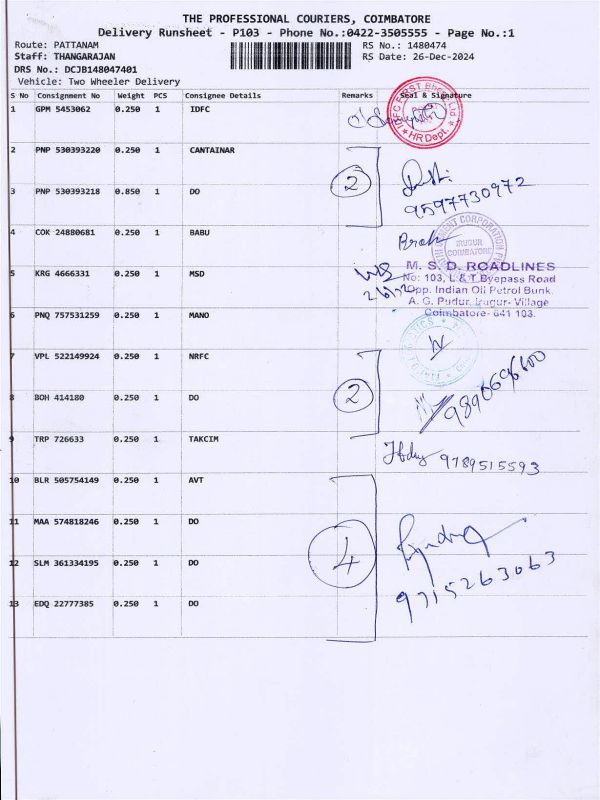 THE PROFESSIONAL COURIERS, COIMBATORE
Delivery Runsheet - P103 - Phone No.:0422-3505555 - Page No.:1
Route: PATTANAM RS No.: 1480474
Staff: THANGARAJAN RS Date: 26-Dec-2024
DRS No.: DCJB148047401
Vehicle: Two Wheeler Delivery
S No Consignment No Weight PCS Consignee Details Remarks Seal & Signature
1 GPM 5453062 0.250 1 IDFC
IDFC FIRST Bharat Ltd
HR Dept.
2 PNP 530393220 0.250 1 CANTAINAR
2
3 PNP 530393218 0.850 1 DO
9597730972
4 COK 24880681 0.250 1 BABU
IRUGUR
COIMBATORE
5 KRG 4666331 0.250 1 MSD
M. S. D. ROADLINES
No: 103, L & T Byepass Road
Opp. Indian Oil Petrol Bunk.
A. G. Pudur, Irugur- Village
Coimbatore- 641 103.
6 PNQ 757531259 0.250 1 MANO
7 VPL 522149924 0.250 1 NRFC
2
8 BOH 414180 0.250 1 DO
9 TRP 726633 0.250 1 TAKCIM
9789515593
10 BLR 505754149 0.250 1 AVT
11 MAA 574818246 0.250 1 DO
4
12 SLM 361334195 0.250 1 DO
9715263063
13 EDQ 22777385 0.250 1 DO